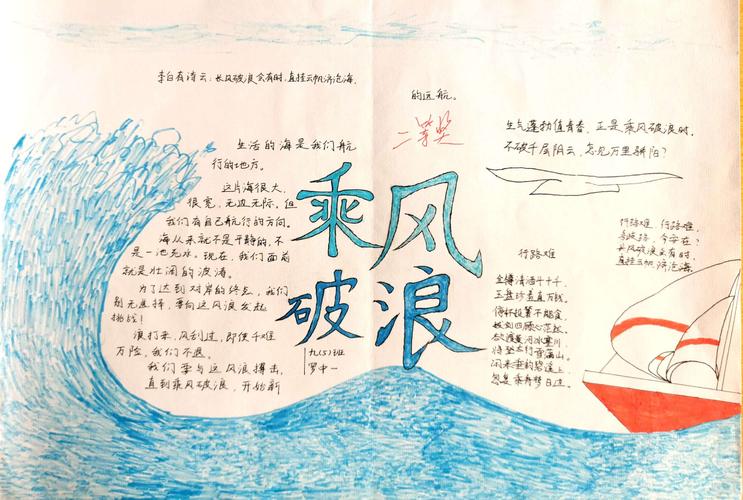 李白有诗云：长风破浪会有时，直挂云帆济沧海。
生活的海是我们航
行的地方。
这片海很大，
很宽，无边无际，但
我们有自己航行的方向。
海从来就不是平静的，不
是一池死水。现在，我们面前
就是壮阔的波涛。
为了达到对岸的终点，我们
别无选择，要向这风浪发起
挑战！
浪打来，风刮过，即使千难
万险，我们不退。
我们要与这风浪搏击，
直到乘风破浪，开始新
的远航。
二等奖
乘风
破浪
九（5）班
罗中一
生气蓬勃值青春，正是乘风破浪时。
不破千层阴云，怎见万里骄阳？
行路难
金樽清酒斗十千，
玉盘珍羞直万钱。
停杯投箸不能食，
拔剑四顾心茫然。
欲渡黄河冰塞川，
将登太行雪满山。
闲来垂钓碧溪上，
忽复乘舟梦日边。
行路难，行路难，
多歧路，今安在？
长风破浪会有时，
直挂云帆济沧海。